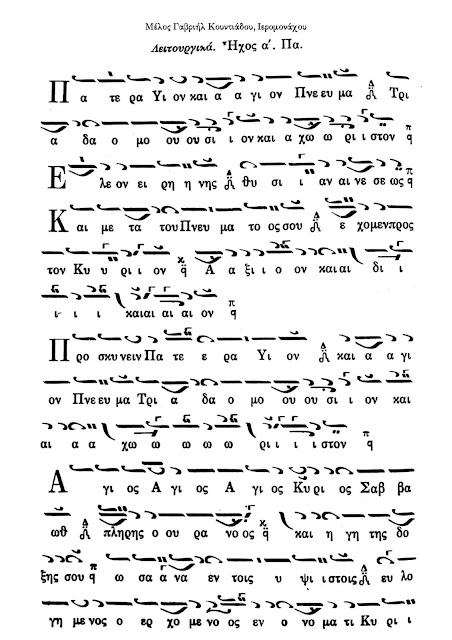 Μέλος Γαβριήλ Κουντιάδου, Ιερομονάχου
Λειτουργικά. Ἦχος α΄. Πα.
Π α τε ρα Υι ον και α α γι ον Πνε ευ μα Τρι
α δα ο μο ου ου σι ι ον και α χω ω ρι ι στον
Ε λε ον ει ρη η νης θυ σι ι αν αι νε σε ως
Κ αι με τα του Πνευ μα το ος σου ε χομεν προς
τον Κυ υ ρι ι ον Α α ξι ι ο ον και αι δι ι
ι ι ι και αι αι αι ον
Π ρο σκυ νειν Πα τε ε ρα Υι ον και α α γι
ον Πνε ευ μα Τρι α δα ο μο ου ου σι ι ον και
αι α α χω ω ω ω ω ρι ι ι ι στον
Α γι ος Α γι ος Α γι ος Κυ ρι ος Σαβ βα
ωθ πληρης ο ου ρα νο ος και η γη της δο
ξης σου ω σα α να εν τοις υ ψι ι στοις ευ λο
γη με νος ο ερ χο με νος εν ο νο μα τι Κυ ρι ι